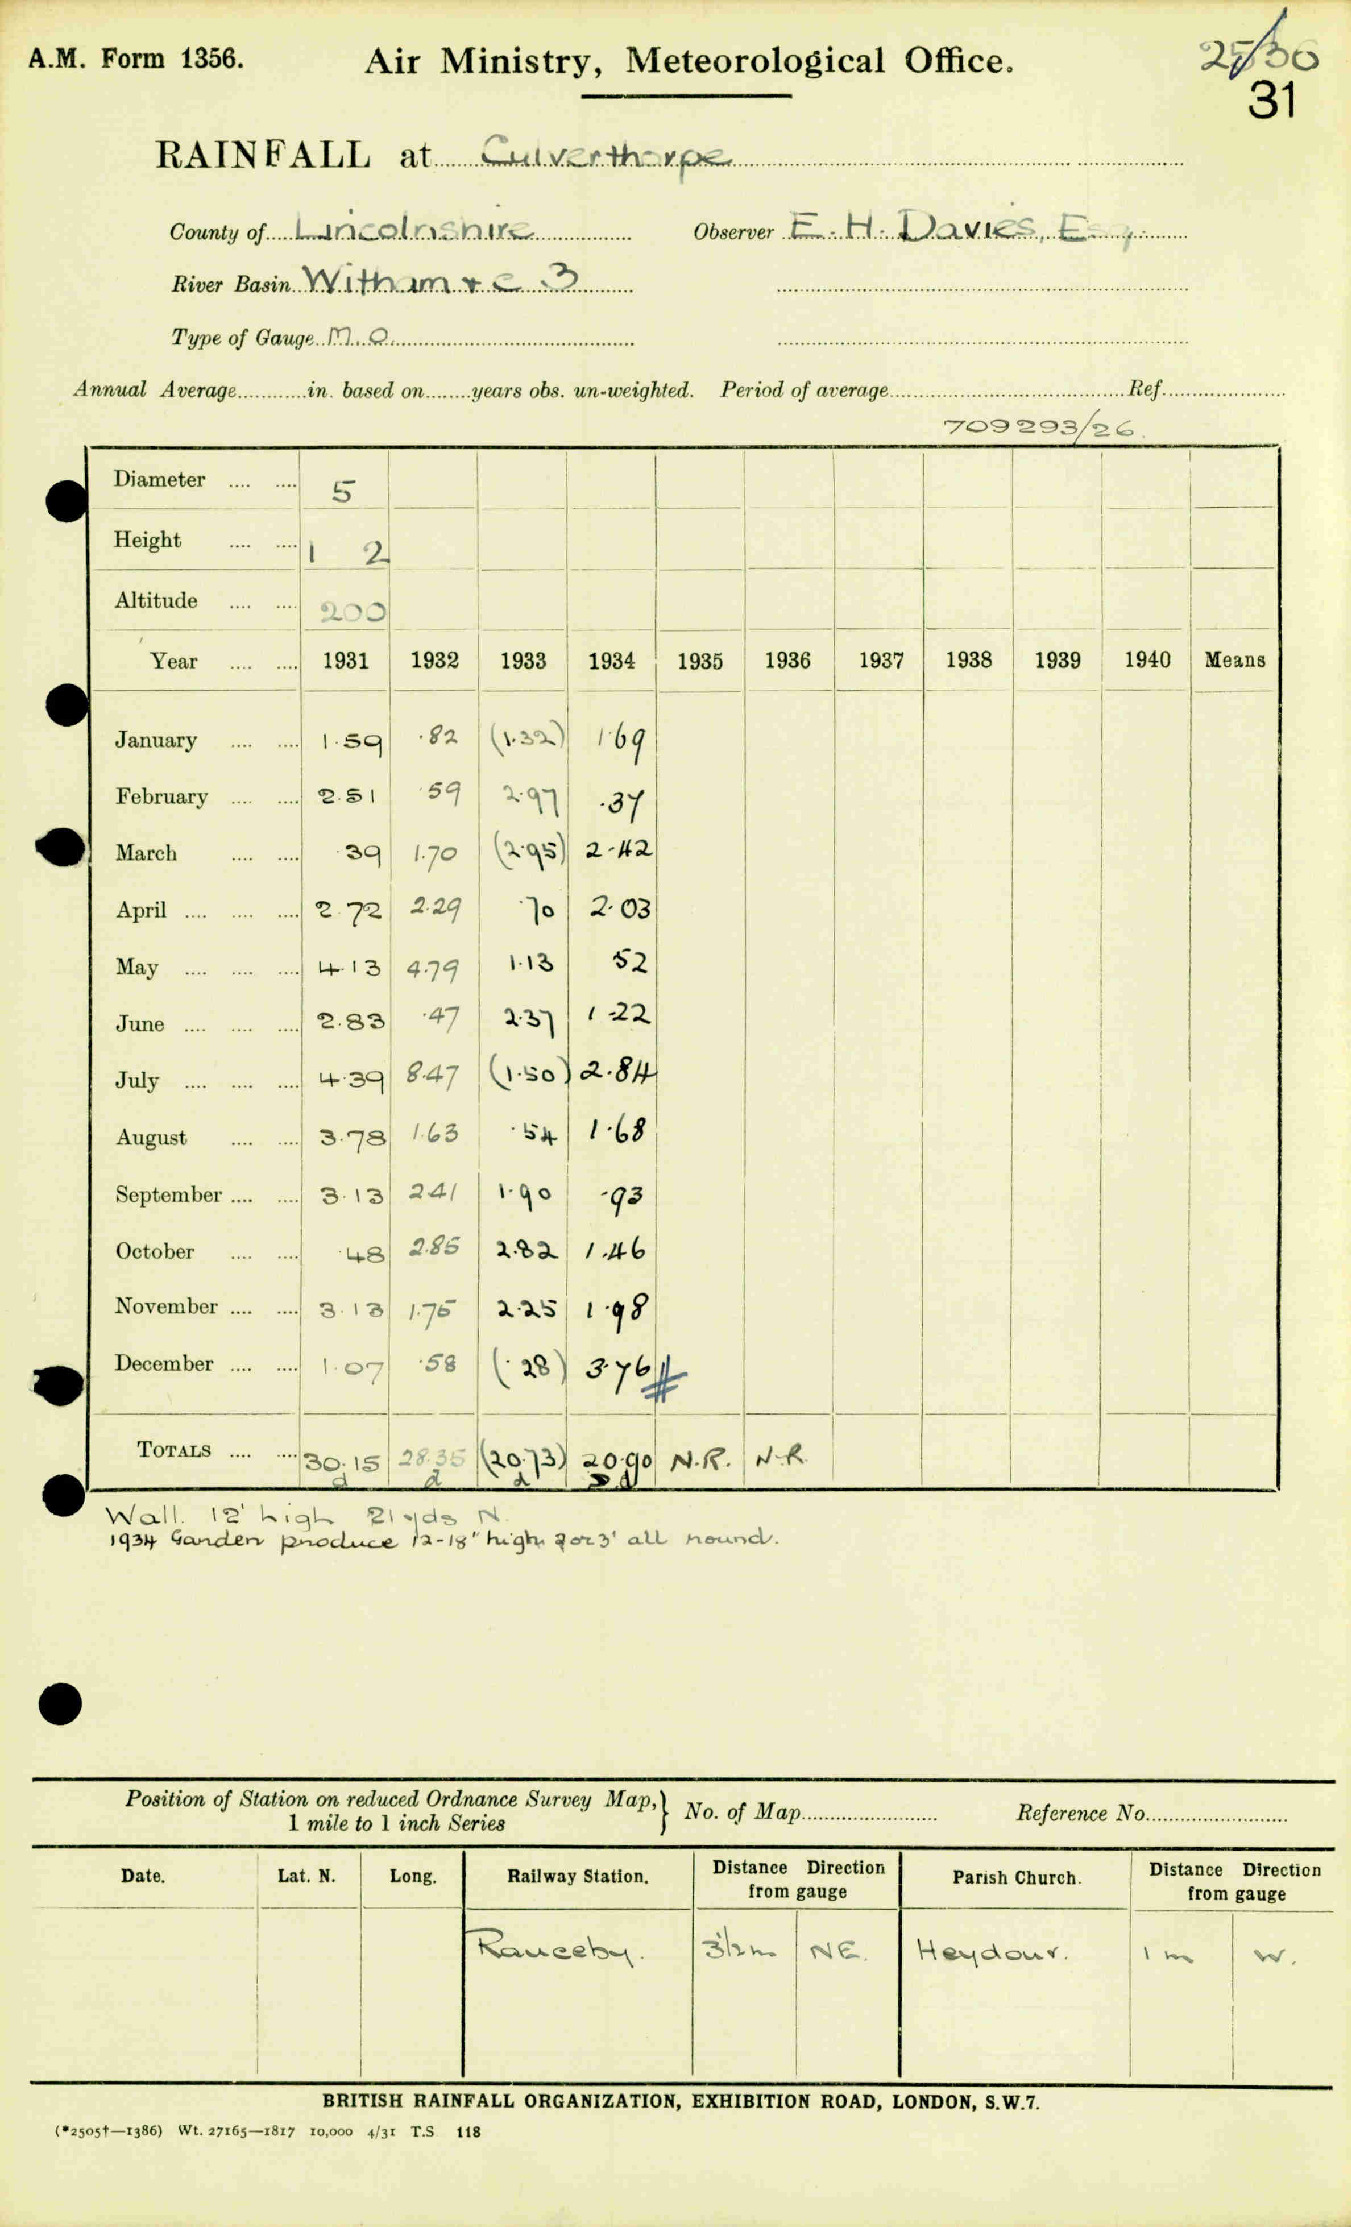 A.M. Form 1356.
Air Ministry, Meteorological Office.
25/36
31
RAINFALL at Culverthorpe
County of Lincolnshire Observer E. H. Davies, Esq.
River Basin Witham & C 3
Type of Gauge M.O.
Annual Average in. based on years obs. un-weighted. Period of average Ref.
709293/26
Diameter 5
Height 1 2
Altitude 200
Year 1931 1932 1933 1934 1935 1936 1937 1938 1939 1940 Means
January 1.59 .82 (1.32) 1.69
February 2.51 .59 2.97 .37
March .39 1.70 (2.95) 2.42
April 2.72 2.29 .70 2.03
May 4.13 4.79 1.13 .52
June 2.83 .47 2.37 1.22
July 4.39 8.47 (1.50) 2.84
August 3.78 1.63 .54 1.68
September 3.13 2.41 1.90 .93
October .48 2.85 2.82 1.46
November 3.13 1.75 2.25 1.98
December 1.07 .58 (.28) 3.76
TOTALS 30.15 28.35 (20.73) 20.90 N.R. N.R.
d d d d
Wall. 12' high 21 yds N.
1934 Garden produce 12-18" high 2 or 3' all round.
Position of Station on reduced Ordnance Survey Map, } No. of Map Reference No.
1 mile to 1 inch Series
Date. Lat. N. Long. Railway Station. Distance Direction from gauge Parish Church. Distance Direction from gauge
Rauceby. 3½m NE. Heydour. 1 m W.
BRITISH RAINFALL ORGANIZATION, EXHIBITION ROAD, LONDON, S.W.7.
(*2505†—1386) Wt. 27165—1817 10,000 4/31 T.S 118